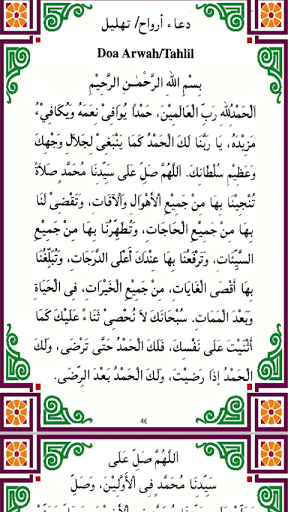 دعاء أرواح/ تهليل
Doa Arwah/Tahlil
بِسْمِ اللهِ الرَّحْمٰنِ الرَّحِيْمِ
اَلْحَمْدُ لِلّٰهِ رَبِّ الْعَالَمِيْنَ، حَمْدًا يُوَافِىْ نِعَمَهُ وَيُكَافِىْءُ
مَزِيْدَهُ، يَا رَبَّنَا لَكَ الْحَمْدُ كَمَا يَنْبَغِىْ لِجَلَالِ وَجْهِكَ
وَعَظِيْمِ سُلْطَانِكَ. اَللَّهُمَّ صَلِّ عَلَى سَيِّدِنَا مُحَمَّدٍ صَلَاةً
تُنْجِيْنَا بِهَا مِنْ جَمِيْعِ الْأَهْوَالِ وَالْآفَاتِ، وَتَقْضِىْ لَنَا
بِهَا مِنْ جَمِيْعِ الْحَاجَاتِ، وَتُطَهِّرُنَا بِهَا مِنْ جَمِيْعِ
السَّيِّئَاتِ، وَتَرْفَعُنَا بِهَا عِنْدَكَ أَعْلَى الدَّرَجَاتِ، وَتُبَلِّغُنَا
بِهَا أَقْصَى الْغَايَاتِ، مِنْ جَمِيْعِ الْخَيْرَاتِ، فِى الْحَيَاةِ
وَبَعْدَ الْمَمَاتِ. سُبْحَانَكَ لَا نُحْصِىْ ثَنَاءً عَلَيْكَ كَمَا
أَثْنَيْتَ عَلَى نَفْسِكَ، فَلَكَ الْحَمْدُ حَتَّى تَرْضَى، وَلَكَ
الْحَمْدُ إِذَا رَضِيْتَ، وَلَكَ الْحَمْدُ بَعْدَ الرِّضَى.
٤٦
اَللَّهُمَّ صَلِّ عَلَى
سَيِّدِنَا مُحَمَّدٍ فِى الْأَوَّلِيْنَ، وَصَلِّ